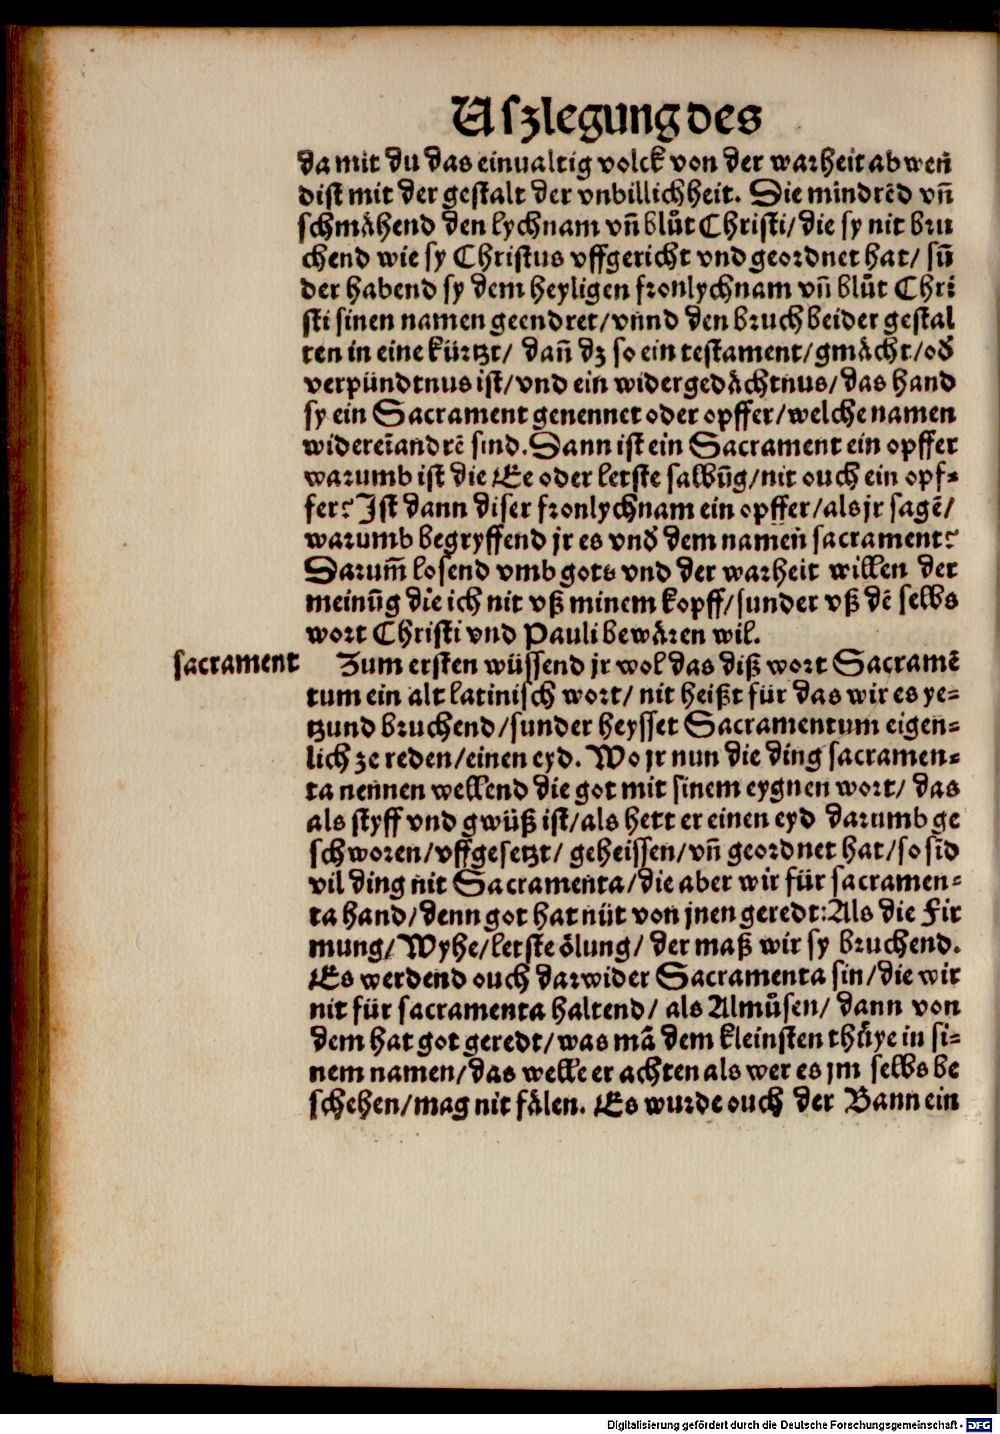 Uſzlegung des
da mit du das einualtig volck von der warheit abwen̄
diſt mit der geſtalt der vnbillichheit. Die mindrēd vn̄
ſchmähend den lychnam vn̄ blůt Chriſti/die ſy nit bru
chend wie ſy Chriſtus vffgericht vnd geordnet hat/ ſū
der habend ſy dem heyligen fronlychnam vn̄ blůt Chri
ſti ſinen namen geendret/vnnd den bruch beider geſtal
ten in eine kürtzt/ dan̄ dz ſo ein teſtament/gmächt/od̓
verpündtnus iſt/vnd ein widergedächtnus/das hand
ſy ein Sacrament genennet oder opffer/welche namen
widereīandrē ſind. Dann iſt ein Sacrament ein opffer
warumb iſt die Ee oder letſte ſalbūg/nit ouch ein opf⸗
fer? Iſt dann diſer fronlychnam ein opffer/als jr ſagē/
warumb begryffend jr es vnd̓ dem namen ſacrament?
Darum̄ loſend vmb gots vnd der warheit willen der
meinūg die ich nit vß minem kopff/ſunder vß dē ſelbs
wort Chriſti vnd Pauli bewären wil.
ſacrament
Zum erſten wüſſend jr wol das diß wort Sacramē
tum ein alt latiniſch wort/ nit heißt für das wir es ye⸗
tzund bruchend/ſunder heyſſet Sacramentum eigen⸗
lich ze reden/einen eyd. Wo jr nun die ding ſacramen⸗
ta nennen wellend die got mit ſinem eygnen wort/ das
als ſtyff vnd gwüß iſt/als hett er einen eyd darumb ge
ſchworen/vffgeſetzt/ geheiſſen/vn̄ geordnet hat/ſo ſīd
vil ding nit Sacramenta/die aber wir für ſacramen⸗
ta hand/denn got hat nüt von jnen geredt: Als die Fir
mung/Wyhe/letſte ölung/ der maß wir ſy bruchend.
Es werdend ouch darwider Sacramenta ſin/die wir
nit für ſacramenta haltend/ als Almůſen/ dann von
dem hat got geredt/was mā dem kleinſten thůye in ſi⸗
nem namen/das welle er achten als wer es jm ſelbs be
ſchehen/mag nit fälen. Es wurde ouch der Bann ein
Digitalisierung gefördert durch die Deutsche Forschungsgemeinschaft - DFG